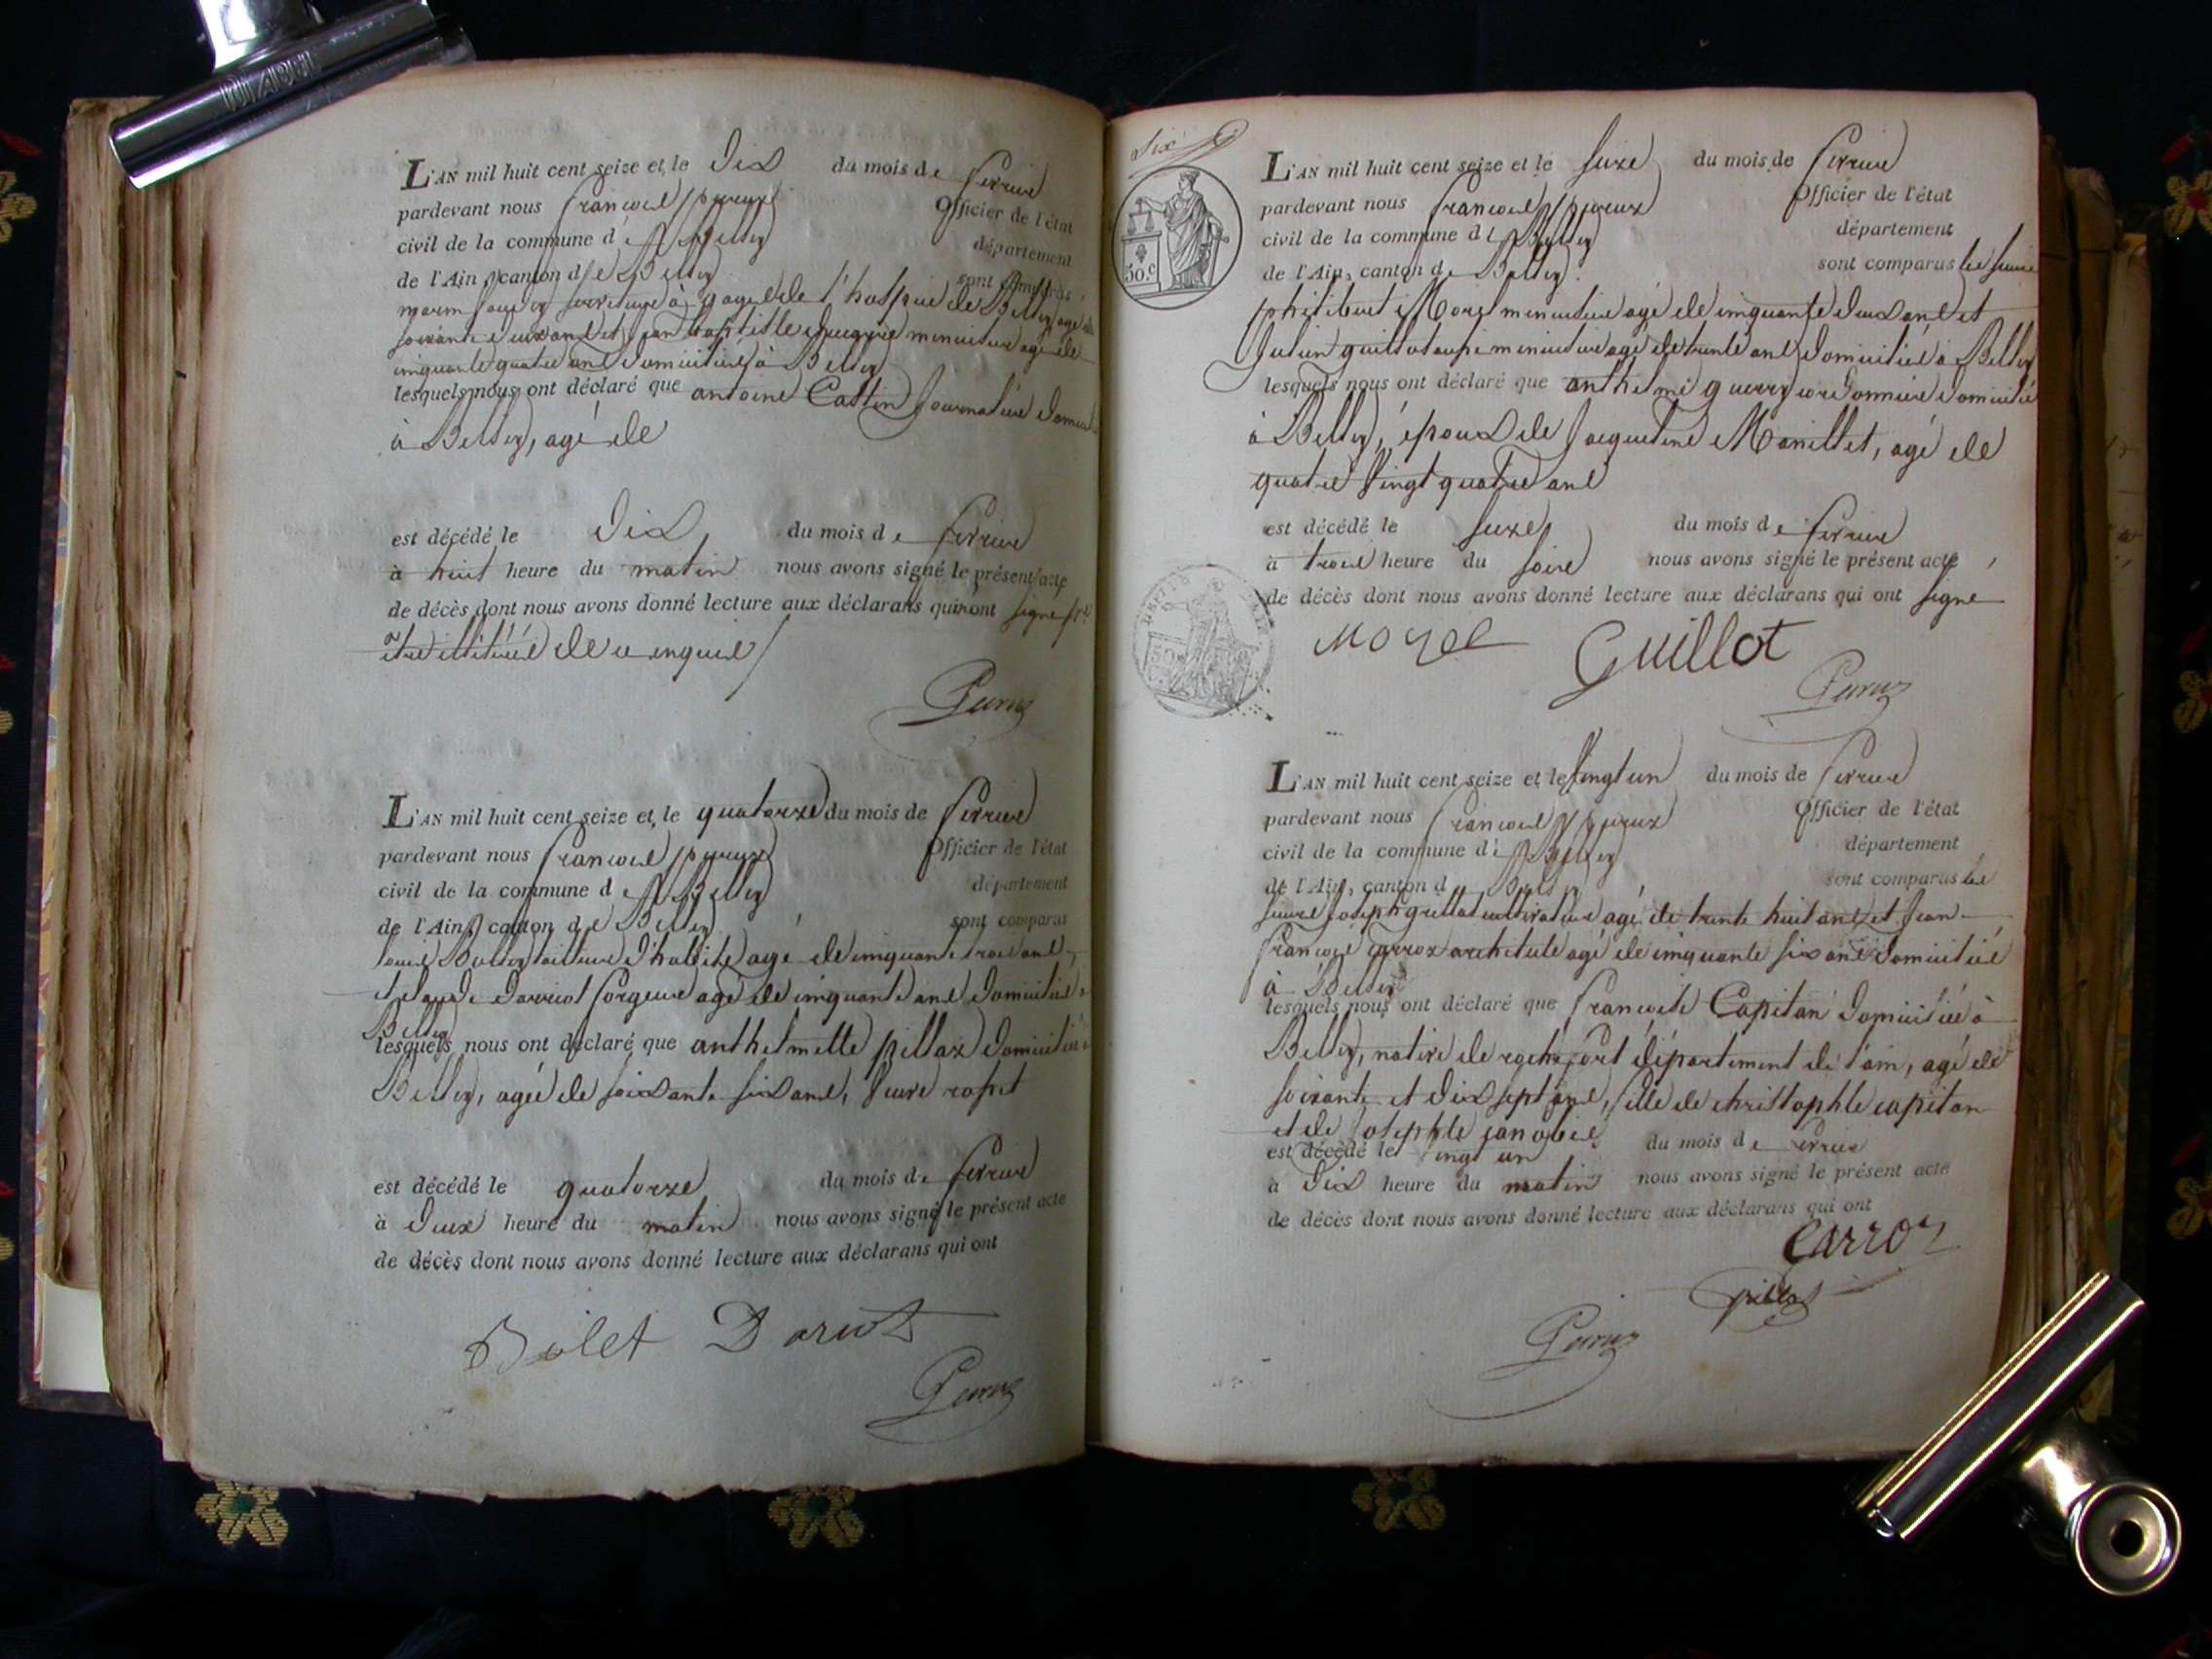 L'AN mil huit cent seize et le dix du mois de fevrier
pardevant nous françois peyreux Officier de l'état
civil de la commune de Belley département
de l'Ain, canton de Belley sont comparus
à gages de l'hospice de Belley agé de
soixante deux ans et jean baptiste menuisier agé de
cinquante quatre ans domiciliés à Belley
lesquels nous ont déclaré que antoine Cattin journalier domicilié
à Belley, agé de
est décédé le dix du mois de fevrier
à huit heure du matin nous avons signé le présent acte
de décès dont nous avons donné lecture aux déclarans qui ont signé
être illitérés de ce enquis
L'AN mil huit cent seize et le quatorze du mois de fevrier
pardevant nous françois peyreux Officier de l'état
civil de la commune de Belley département
de l'Ain, canton de Belley sont comparus
louis tailleur d'habits agé de cinquante trois ans
et claude Darriot forgeur agé de cinquante ans domiciliés à
Belley
lesquels nous ont déclaré que anthelmette pillaz domiciliée à
Belley, agée de soixante six ans, veuve
est décédé le quatorze du mois de fevrier
à deux heure du matin nous avons signé le présent acte
de décès dont nous avons donné lecture aux déclarans qui ont
Bolet Dariot
six
50.c
L'AN mil huit cent seize et le seize du mois de fevrier
pardevant nous françois peyreux Officier de l'état
civil de la commune de Belley département
de l'Ain, canton de Belley sont comparus les sieurs
philibert Morel menuisier agé de cinquante deux ans et
guillot aussi menuisier agé de trente ans domiciliés à Belley
lesquels nous ont déclaré que anthelme guerry cordonnier domicilié
à Belley, époux de jacqueline Monillet, agé de
quatre vingt quatre ans
est décédé le seize du mois de fevrier
à trois heure du soir nous avons signé le présent acte
de décès dont nous avons donné lecture aux déclarans qui ont signé
Morel Guillot
L'AN mil huit cent seize et le vingt un du mois de fevrier
pardevant nous françois peyreux Officier de l'état
civil de la commune de Belley département
de l'Ain, canton de Belley sont comparus les
sieurs joseph grillat cultivateur agé de trente huit ans et jean
françois carroz architecte agé de cinquante six ans domiciliés
à Belley
lesquels nous ont déclaré que françoise Capitan domiciliée à
Belley, native de rochefort département de l'ain, agé de
soixante et dix sept ans, fille de christophle capitan
et de josephte
est décédé le vingt un du mois de fevrier
à dix heure du matin nous avons signé le présent acte
de décès dont nous avons donné lecture aux déclarans qui ont
Carroz